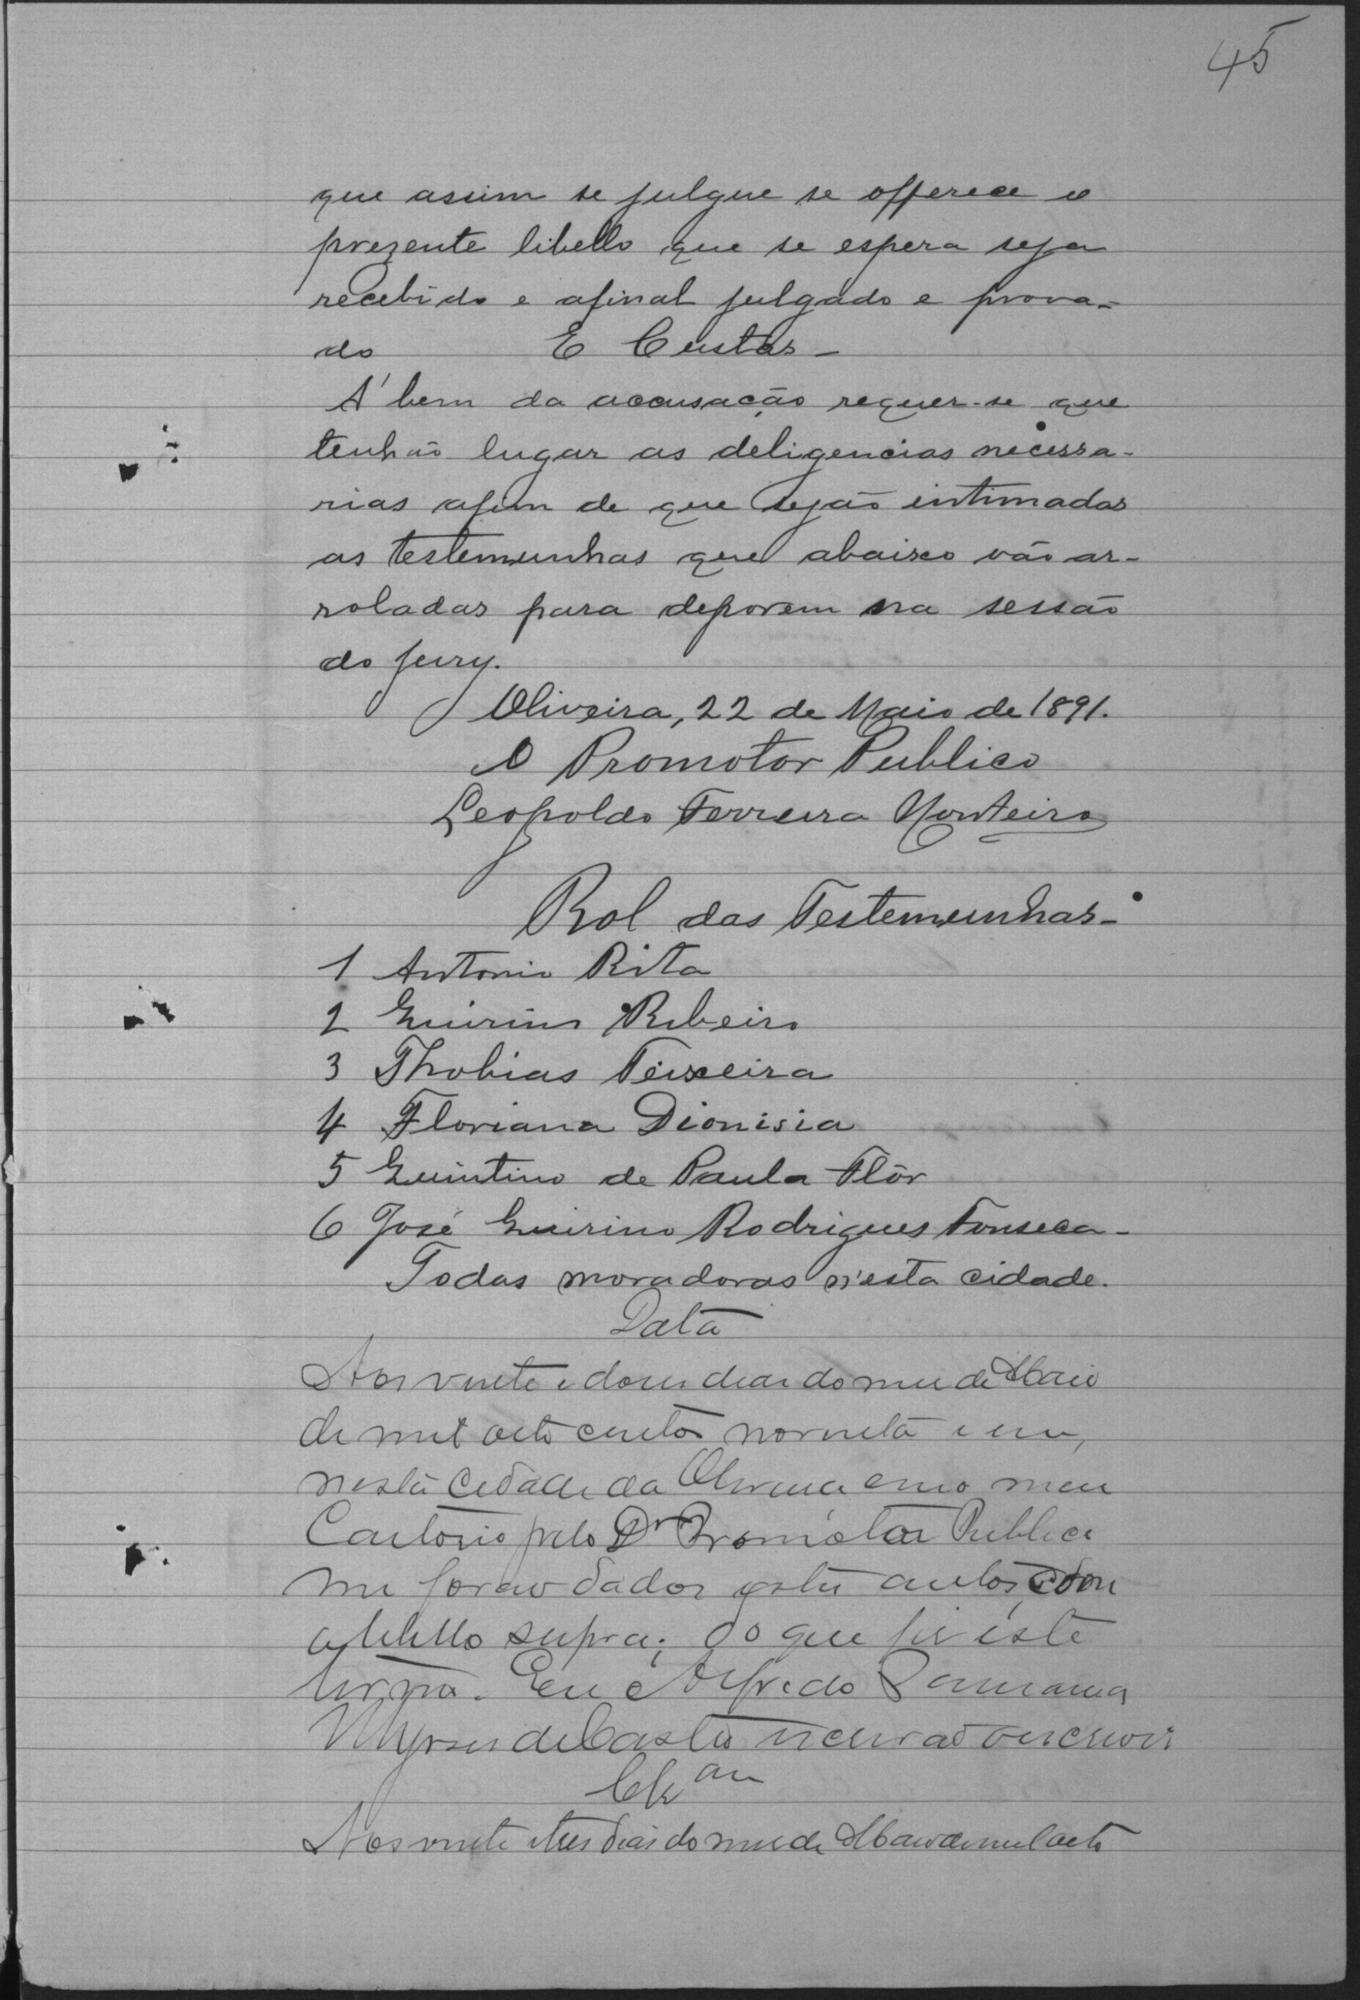 45
que assim se julgue se offerece o
prezente libello que se espera seja
recebido e afinal julgado e prova-
do E Custas-
A' bem da accusação requer-se que
tenhão lugar as deligencias necessa-
rias afim de que sejão intimadas
as testemunhas que abaixo vão ar-
roladas para deporem na sessão
do jury.
Oliveira, 22 de Maio de 1891.
O Promotor Publico
Leopoldo Ferreira Monteiro
Rol das Testemunhas-
1 Antonio Rita
2 Quirino Ribeiro
3 Thobias Teixeira
4 Floriana Dionisia
5 Quintino de Paula Flôr
6 José Quirino Rodrigues Fonseca-
Todas moradoras n'esta cidade.
Data
Aos vinte e dous dias do mes de Maio
de mil oito centos noventa e um,
nesta Cidade da Oliveira em o meu
Cartorio pelo Dr Promotor Publico
me forão dados estes autos, com
o libello supra; do que fiz este
termo. Eu Alfredo
de Castro escrivão o escrevi
Clz am
Aos vinte e tres dias do mes de Maio de mil oito